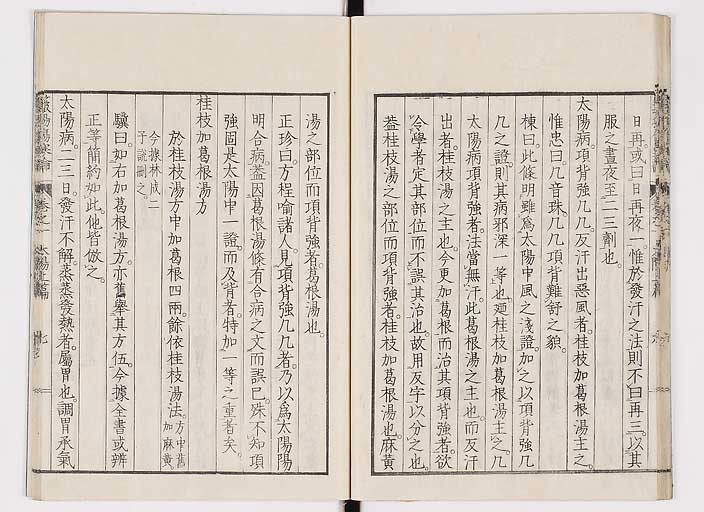 日再或曰日再夜一惟於發汗之法則不曰再三以其
服之晝夜至二三劑也
太陽病項背強几几反汗出惡風者桂枝加葛根湯主之
惟忠曰几音珠几几項背難舒之貌
棟曰此條明雖爲太陽中風之淺證加之以項背強几
几之證則其病邪深一等也廼桂枝加葛根湯主之几
太陽病項背強者法當無汗此葛根湯之主也而反汗
出者桂枝湯之主也今更加葛根而治其項背強者欲
令學者定其部位而不誤其治也故用反字以分之也
蓋桂枝湯之部位而項背強者桂枝加葛根湯也麻黃
湯之部位而項背強者葛根湯也
正珍曰方程喻諸人見項背強几几者乃以爲太陽陽
明合病蓋因葛根湯條有合病之文而誤已殊不知項
強固是太陽中一證而及背者特加一等之重者矣
桂枝加葛根湯方
於桂枝湯方中加葛根四兩餘依桂枝湯法方中舊加麻黃
今據林成二
子說刪之
驥曰如右加葛根湯方亦舊擧其方伍今據全書或辨
正等簡約如此他皆倣之
太陽病二三日發汗不解蒸蒸發熱者屬胃也調胃承氣
卷之一 太陽上篇